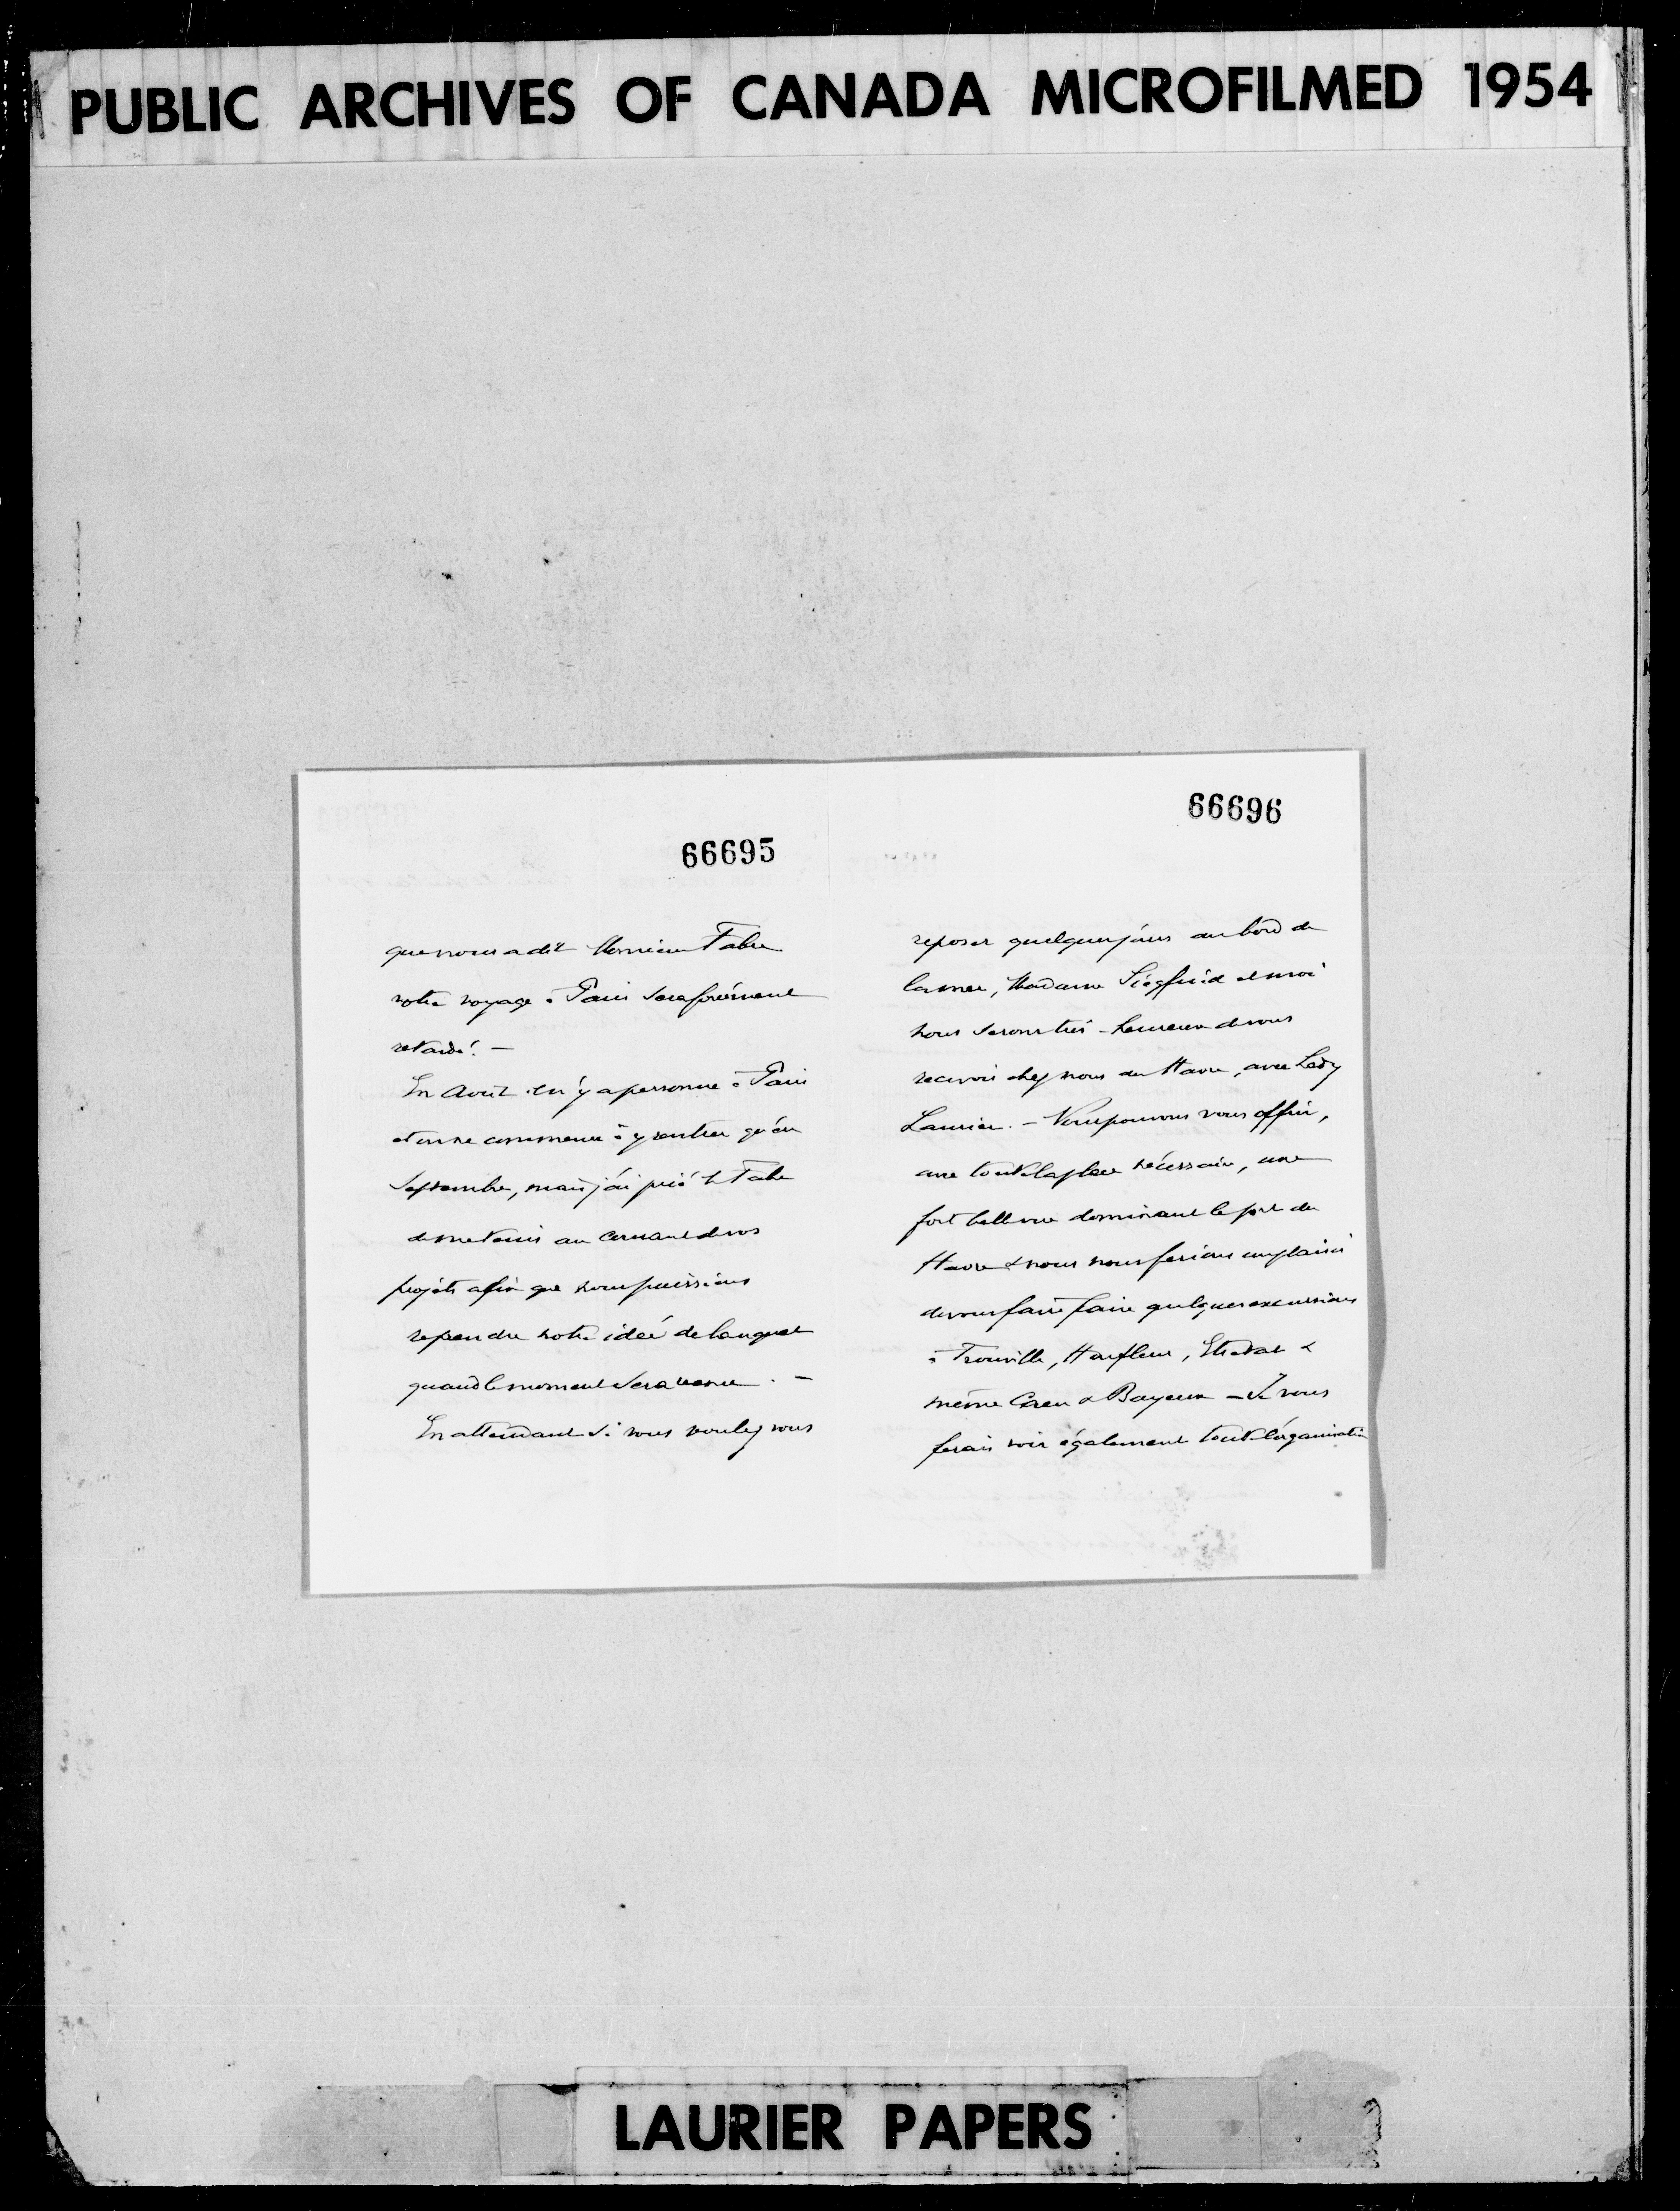 PUBLIC ARCHIVES OF CANADA MICROFILMED 1954
66695
que nous a dit Monsieur Fabre
votre voyage à Paris sera forcément
retardé. —
En Août il n'y a personne à Paris
et on ne commence à y rentrer qu'en
Septembre, mais j'ai prié M Fabre
de me tenir au courant de vos
projets afin que nous puissions
reprendre notre idée de banquet
quand le moment sera venu. —
En attendant si vous voulez vous
66696
reposer quelques jours au bord de
la mer, Madame Siegfried et moi
nous serons très-heureux de vous
recevoir chez nous au Havre, avec Lady
Laurier. — Nous pouvons vous offrir,
avec toute la place nécessaire, une
fort belle vue dominant le port du
Havre & nous nous ferions un plaisir
de vous faire faire quelques excursions
à Trouville, Honfleur, Etretat &
même Caen & Bayeux — Je vous
ferais voir également toute l'organisation
LAURIER PAPERS